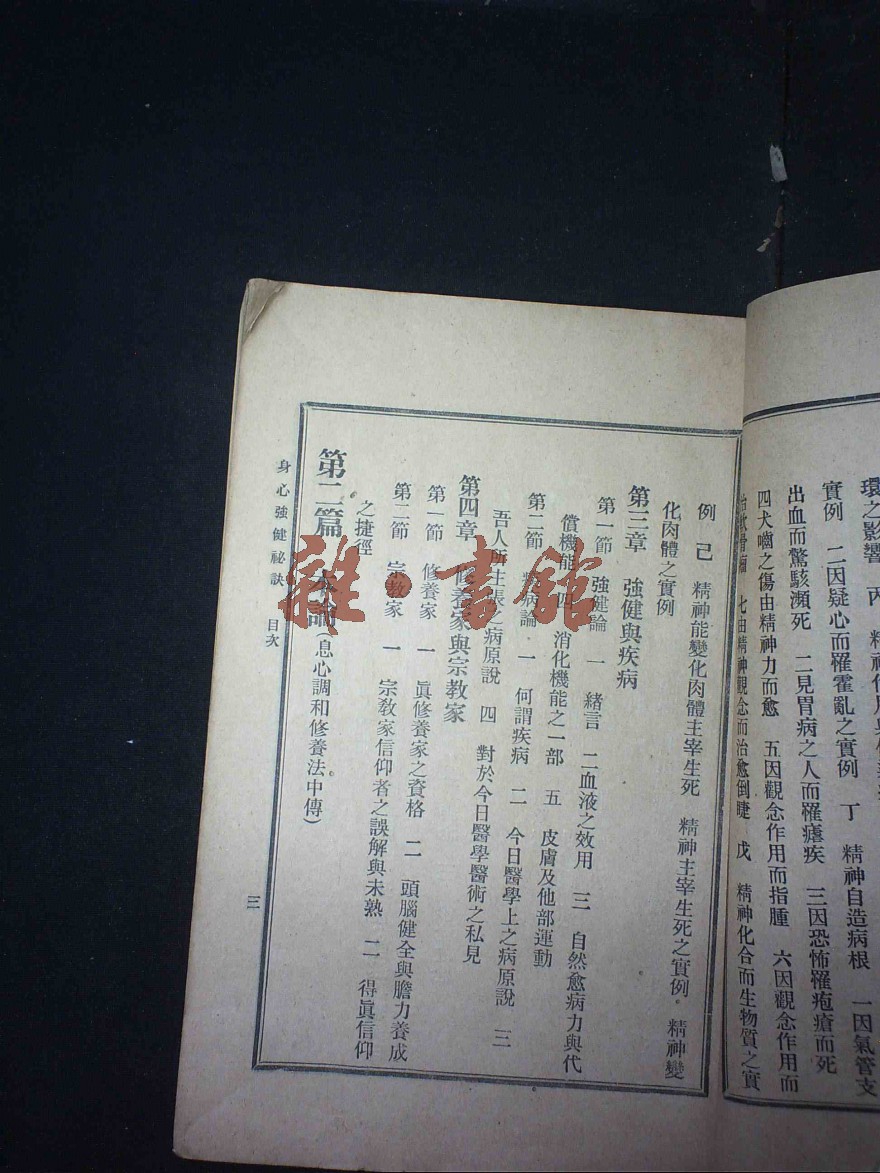 環之影響　丙　精神作用與
實例　二因疑心而罹霍亂之實例　丁　精神自造病根　一因氣管支
出血而驚駭瀕死　二見胃病之人而罹瘧疾　三因恐怖罹疱瘡而死
四犬嚙之傷由精神力而愈　五因觀念作用而指腫　六因觀念作用而
治軟骨瘤　七由精神觀念而治愈倒睫　戊　精神化合而生物質之實
例　己　精神能變化肉體主宰生死　精神主宰生死之實例　精神變
化肉體之實例
第三章　強健與疾病
第一節　強健論　一　緒言　二血液之效用　三　自然愈病力與代
償機能　四　消化機能之一部　五　皮膚及他部運動
第二節　疾病論　一　何謂疾病　二　今日醫學上之病原說　三
吾人所主張之病原說　四　對於今日醫學醫術之私見
第四章　修養家與宗教家
第一節　修養家　一　眞修養家之資格　二　頭腦健全與膽力養成
第二節　宗教家　一　宗教家信仰者之誤解與未熟　二　得眞信仰
之捷徑
第二篇　本論（息心調和修養法中傳）
身心強健祕訣　目次
三
雜·書館